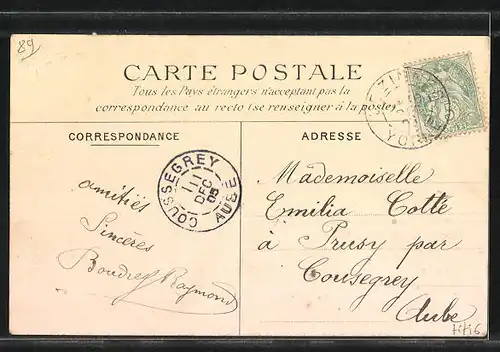 89
CARTE POSTALE
Tous les Pays étrangers n'acceptant pas la
correspondance au recto (se renseigner à la poste)
CORRESPONDANCE
ADRESSE
COUSSEGREY
11
DEC
05
AUBE
amitiés
Sincères
Raymond
Mademoiselle
Emilia Cotte
à Prusy par
Cousegrey
Aube